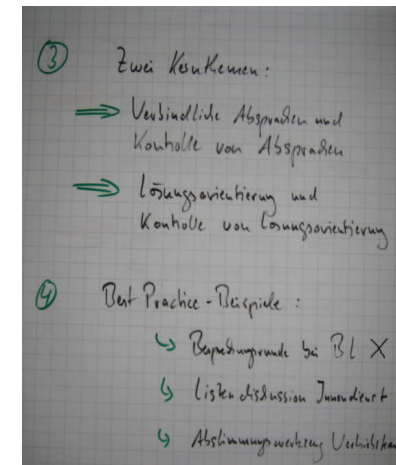 ③ Zwei Kernthemen:
⇒ Verbindliche Absprachen und
Kontrolle von Absprachen
⇒ Lösungsorientierung und
Kontrolle von Lösungsorientierung
④ Best Practice - Beispiele:
↳ Besprechungsrunde bei BL X
↳ Listendiskussion Innendienst
↳ Abstimmungswerkzeug